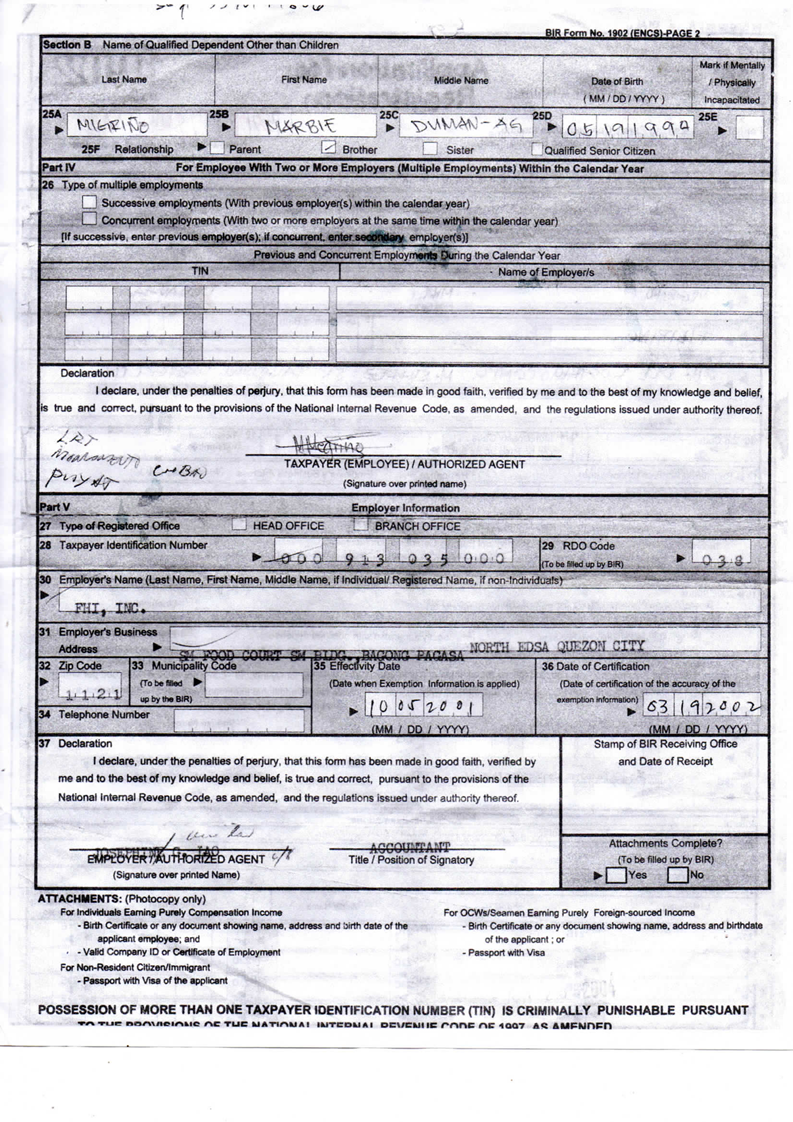 BIR Form No. 1902 (ENCS)-PAGE 2
Section B Name of Qualified Dependent Other than Children
Last Name First Name Middle Name Date of Birth (MM / DD / YYYY) Mark if Mentally / Physically Incapacitated
25A MIGRIÑO 25B MARBIE 25C DUMAN-AG 25D 05191990 25E
25F Relationship Parent Brother Sister Qualified Senior Citizen
Part IV For Employee With Two or More Employers (Multiple Employments) Within the Calendar Year
26 Type of multiple employments
Successive employments (With previous employer(s) within the calendar year)
Concurrent employments (With two or more employers at the same time within the calendar year)
[If successive, enter previous employer(s); if concurrent, enter secondary employer(s)]
Previous and Concurrent Employments During the Calendar Year
TIN Name of Employer/s
Declaration
I declare, under the penalties of perjury, that this form has been made in good faith, verified by me and to the best of my knowledge and belief,
is true and correct, pursuant to the provisions of the National Internal Revenue Code, as amended, and the regulations issued under authority thereof.
LRT
TAXPAYER (EMPLOYEE) / AUTHORIZED AGENT
(Signature over printed name)
Part V Employer Information
27 Type of Registered Office HEAD OFFICE BRANCH OFFICE
28 Taxpayer Identification Number 000 913 035 000 29 RDO Code (To be filled up by BIR) 038
30 Employer's Name (Last Name, First Name, Middle Name, if Individual/ Registered Name, if non-Individuals)
FHI, INC.
31 Employer's Business Address
SM FOOD COURT SM BLDG.,BAGONG PAGASA NORTH EDSA QUEZON CITY
32 Zip Code 1121 33 Municipality Code (To be filled up by the BIR)
34 Telephone Number
35 Effectivity Date
(Date when Exemption Information is applied)
10052001
(MM / DD / YYYY)
36 Date of Certification
(Date of certification of the accuracy of the exemption information)
03192002
(MM / DD / YYYY)
37 Declaration
I declare, under the penalties of perjury, that this form has been made in good faith, verified by
me and to the best of my knowledge and belief, is true and correct, pursuant to the provisions of the
National Internal Revenue Code, as amended, and the regulations issued under authority thereof.
EMPLOYER / AUTHORIZED AGENT
(Signature over printed Name)
ACCOUNTANT
Title / Position of Signatory
Stamp of BIR Receiving Office
and Date of Receipt
Attachments Complete?
(To be filled up by BIR)
Yes No
ATTACHMENTS: (Photocopy only)
For Individuals Earning Purely Compensation Income
- Birth Certificate or any document showing name, address and birth date of the
applicant employee; and
- Valid Company ID or Certificate of Employment
For Non-Resident Citizen/Immigrant
- Passport with Visa of the applicant
For OCWs/Seamen Earning Purely Foreign-sourced Income
- Birth Certificate or any document showing name, address and birthdate
of the applicant ; or
- Passport with Visa
POSSESSION OF MORE THAN ONE TAXPAYER IDENTIFICATION NUMBER (TIN) IS CRIMINALLY PUNISHABLE PURSUANT
TO THE PROVISIONS OF THE NATIONAL INTERNAL REVENUE CODE OF 1997, AS AMENDED